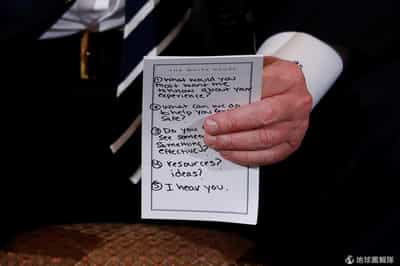 THE WHITE HOUSE
① What would you
most want me
to know about your
experience?
② What can we do
to help you feel
safe?
③ Do you
see some
something
effective?
④ resources?
ideas?
⑤ I hear you.
地球圖輯隊